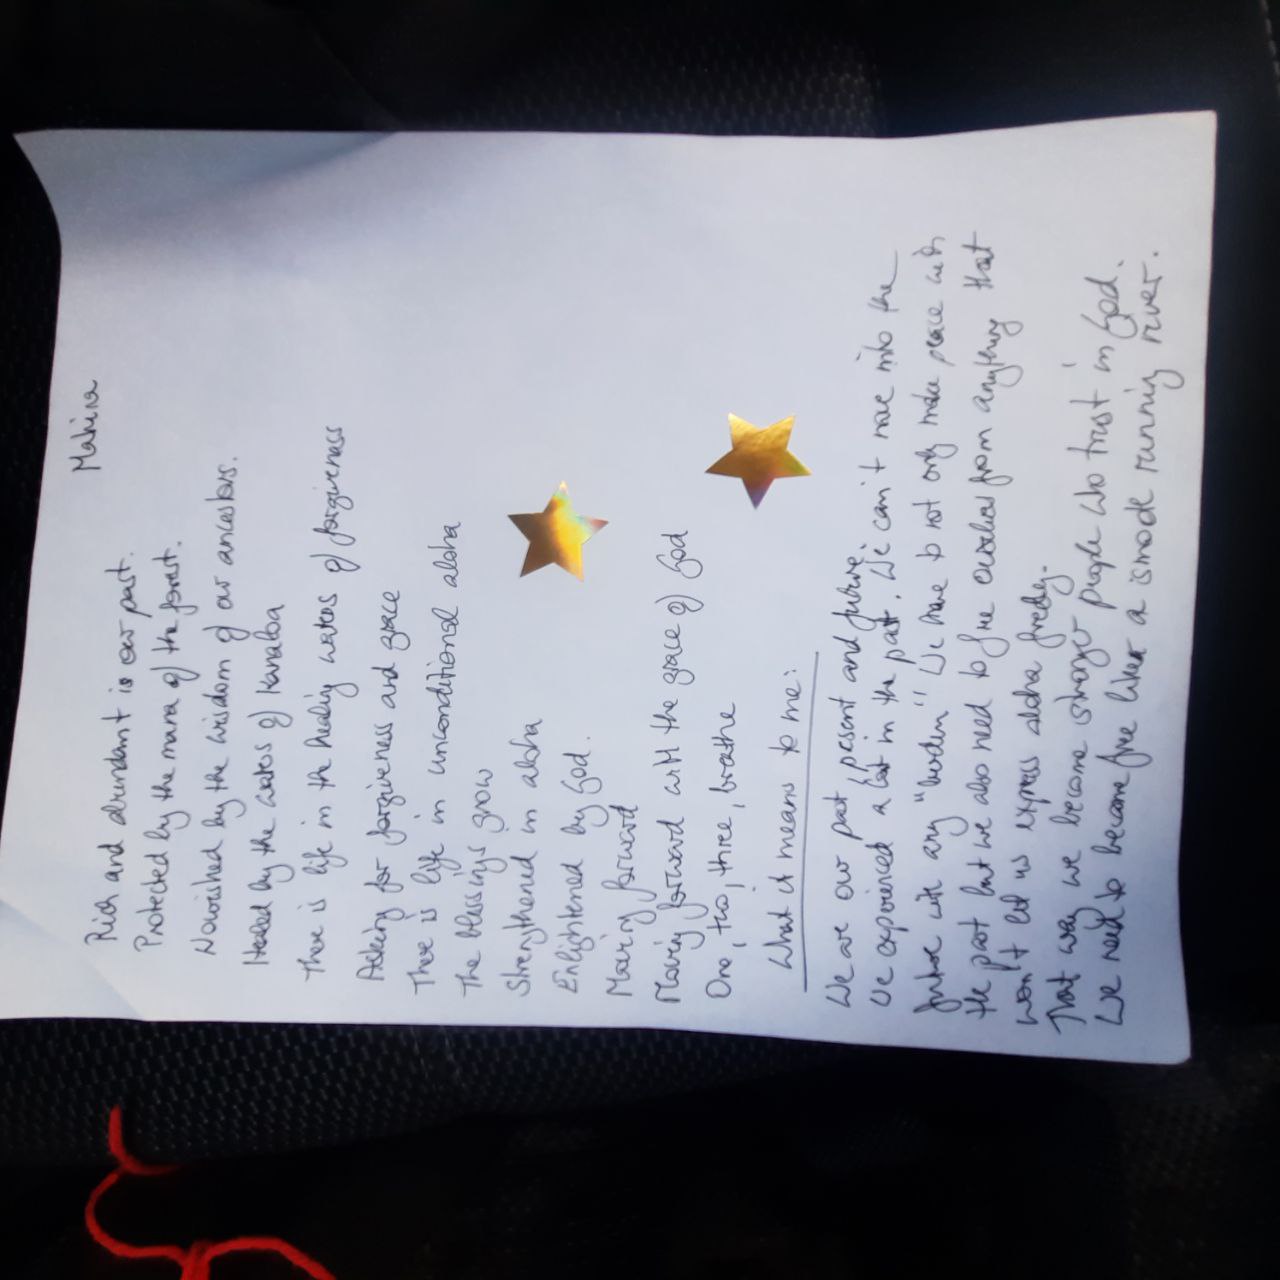 Mahina
Rich and abundant is our past.
Protected by the mana of the forest.
Nourished by the wisdom of our ancestors.
Healed by the waters of Kanaloa
There is life in the healing waters of forgiveness
Asking for forgiveness and grace
There is life in unconditional aloha
The blessings grow
Strengthened in aloha
Enlightened by God.
Moving forward
Moving forward with the grace of God
One, two, three, breathe
What it means to me:
We are our past, present and future.
We experienced a lot in the past. We can't move into the
future with any "burden" We have to not only make peace with
the past but we also need to free ourselves from anything that
won't let us express aloha freely.
That way we become stronger people who trust in God.
We need to become free like a smooth running river.